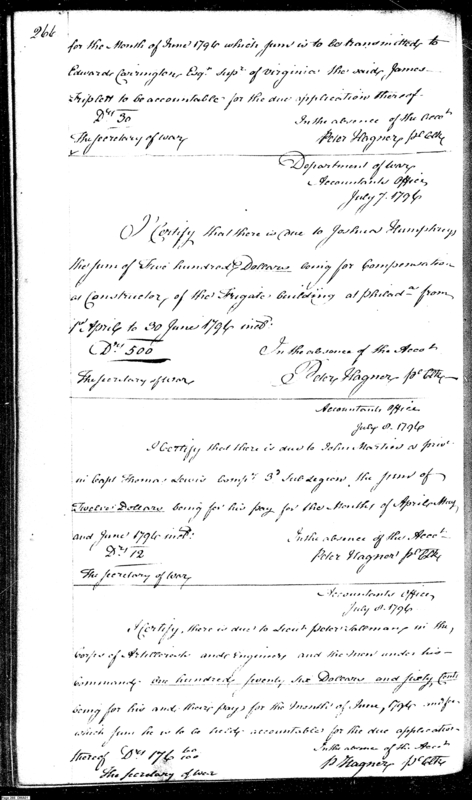 266
for the Month of June 1796 which sum is to be transmitted to
Edward Carrington Esqr. Supr. of Virginia the said James
Triplett to be accountable for the due application thereof.
Drs 30
In the absence of the Accot.
The Secretary of War
Peter Hagner pl Clk
Department of War
Accountants Office
July 7. 1796
I Certify that there is due to Joshua Humphreys
the sum of Five hundred Dollars being for Compensation
as Constructor of the Frigate building at Philada. from
1st April to 30 June 1796 incl:
Drs 500
In the absence of the Accot
The Secretary of War
Peter Hagner pl Clk
Accountants Office
July 8. 1796
I Certify that there is due to John Martin a priv:
in Capt Thomas Lewis Compy. 3d Sub Legion, the sum of
Twelve Dollars being for his pay for the Months of April May
and June 1796 incl:
In the absence of the Accot.
Drs 12
Peter Hagner pl Clk
The Secretary of War
Accountants Office
July 8. 1796
I Certify, there is due to Lieut Peter Talman, in the
Corps of Artillerists and Engineers and the Men under his
command one hundred seventy six Dollars and sixty Cents
being for his and their pay for the Month of June, 1796
which sum he is to be held accountable for the due application
thereof Drs 176 60/100
In the absence of the Accot
The Secretary of War
P Hagner pl Clk